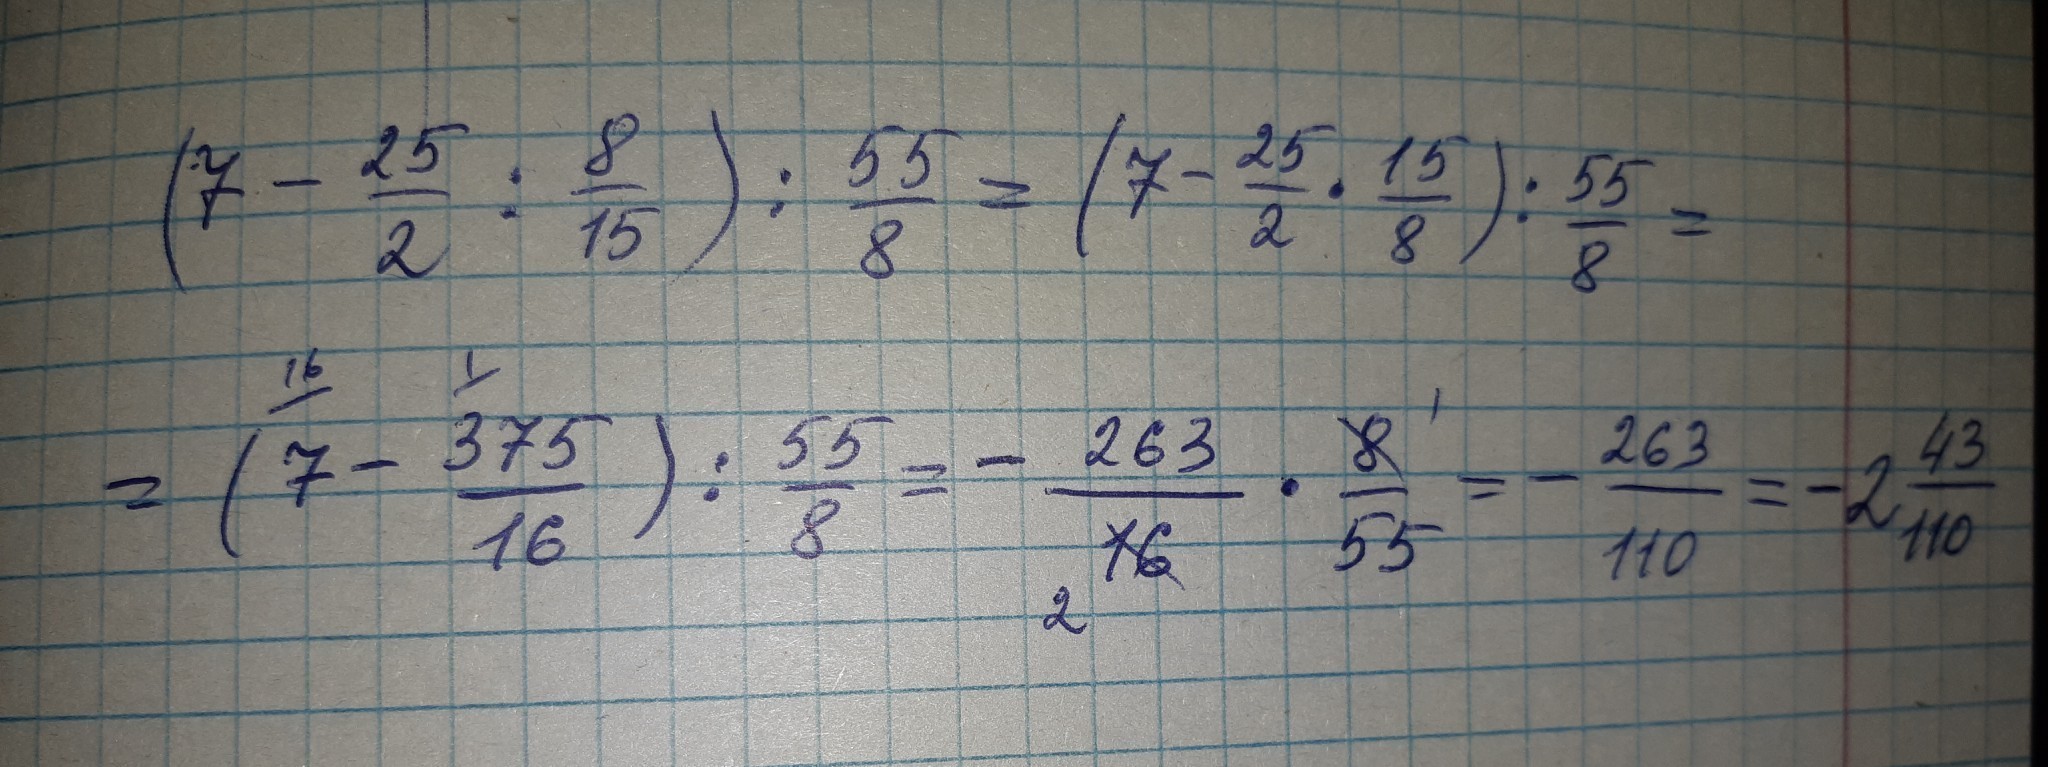 (7 - 25/2 : 8/15) : 55/8 = (7 - 25/2 · 15/8) : 55/8 =
16 1
= (7 - 375/16) : 55/8 = - 263/16 · 8/55 = - 263/110 = -2 43/110
2 1